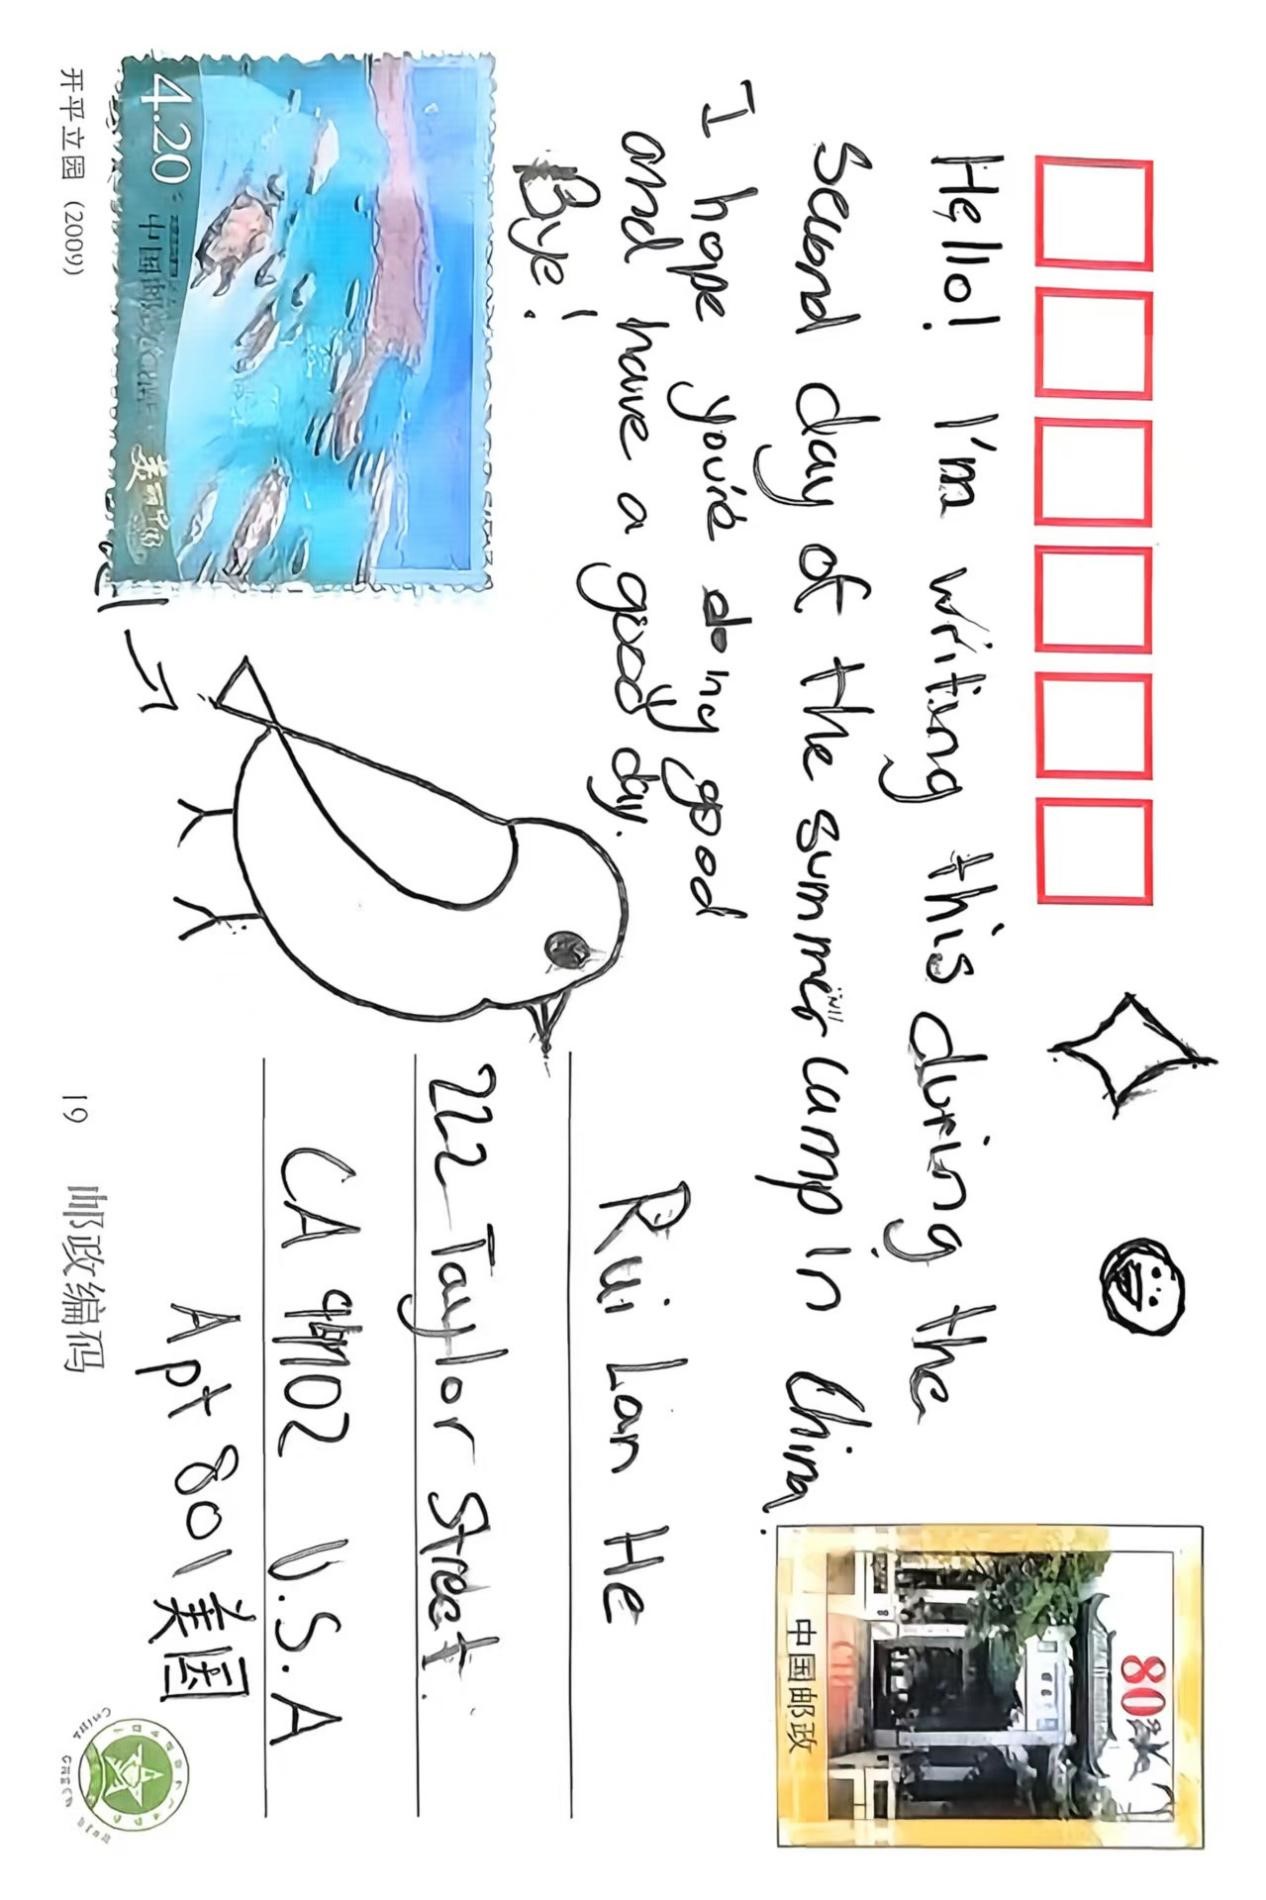 Hello! I'm writing this during the
second day of the summer camp in China.
I hope you're doing good
and have a good day.
Bye!
80
中国邮政
Rui Lan He
222 Taylor Street.
CA 94102 U.S.A
Apt 801 美国
4.20
中国邮政
开平立园 (2009)
19 邮政编码